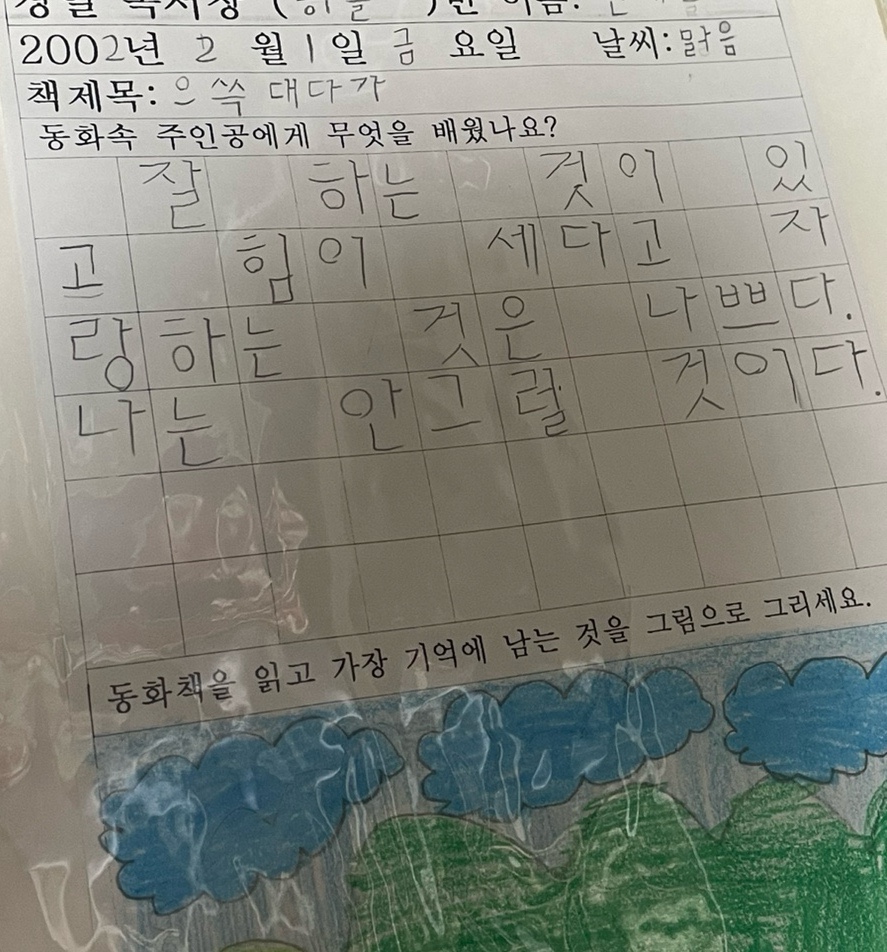 2002년 2 월 1 일 금 요일 날씨: 맑음
책제목: 으쓱 대다가
동화속 주인공에게 무엇을 배웠나요?
잘 하는 것이 있
고 힘이 세다고 자
랑하는 것은 나쁘다.
나는 안그럴 것이다.
동화책을 읽고 가장 기억에 남는 것을 그림으로 그리세요.